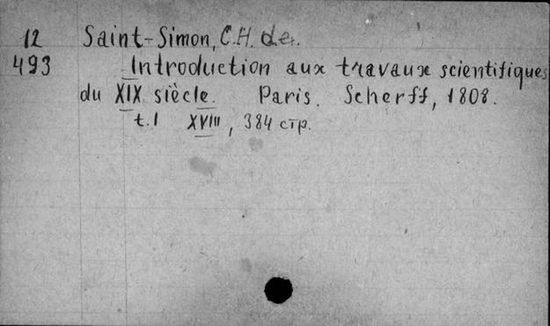 12 Saint-Simon, C.H. de.
493 Introduction aux travaux scientifiques
du XIX siècle. Paris. Scherff, 1808.
t.I XVIII, 384 стр.